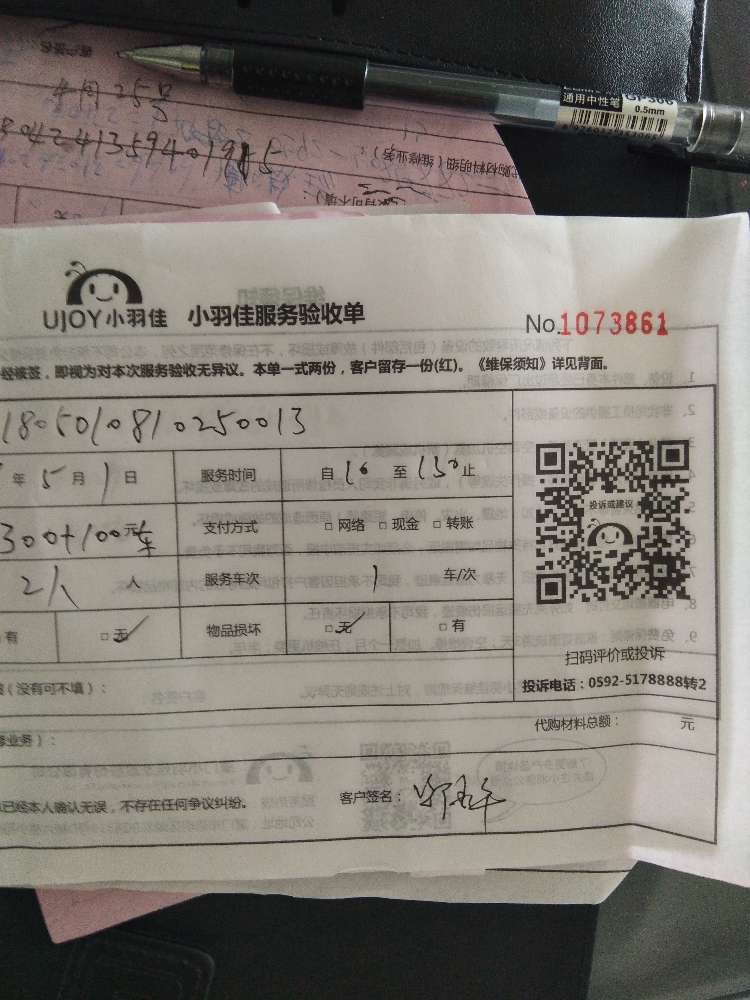 4月25号
804241359401915
通用中性笔
0.5mm
UJOY小羽佳 小羽佳服务验收单 No.1073861
经核签，即视为对本次服务验收无异议。本单一式两份，客户留存一份(红)。《维保须知》详见背面。
180501081025 0013
年5月1日 服务时间 自10至130止
300+100元车 支付方式 □网络 □现金 □转账
2人 人 服务车次 1 车/次
有 □无 物品损坏 □无 □有
投诉或建议
扫码评价或投诉
投诉电话：0592-5178888转2
(没有可不填)：
代购材料总额： 元
业务)：
已经本人确认无误，不存在任何争议纠纷。 客户签名：